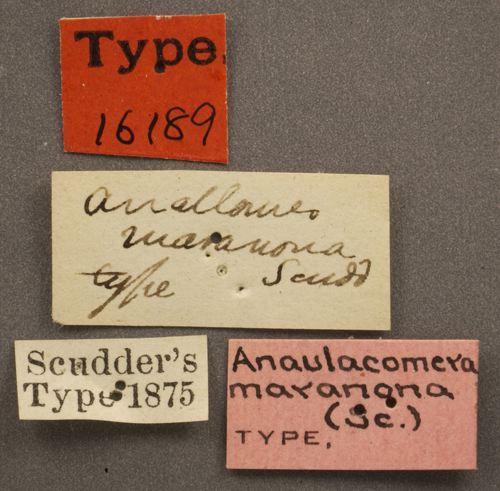 Type
16189
Anallomes
maranona
type Scudd
Scudder's
Type 1875
Anaulacomera
maranona
(Sc.)
TYPE.